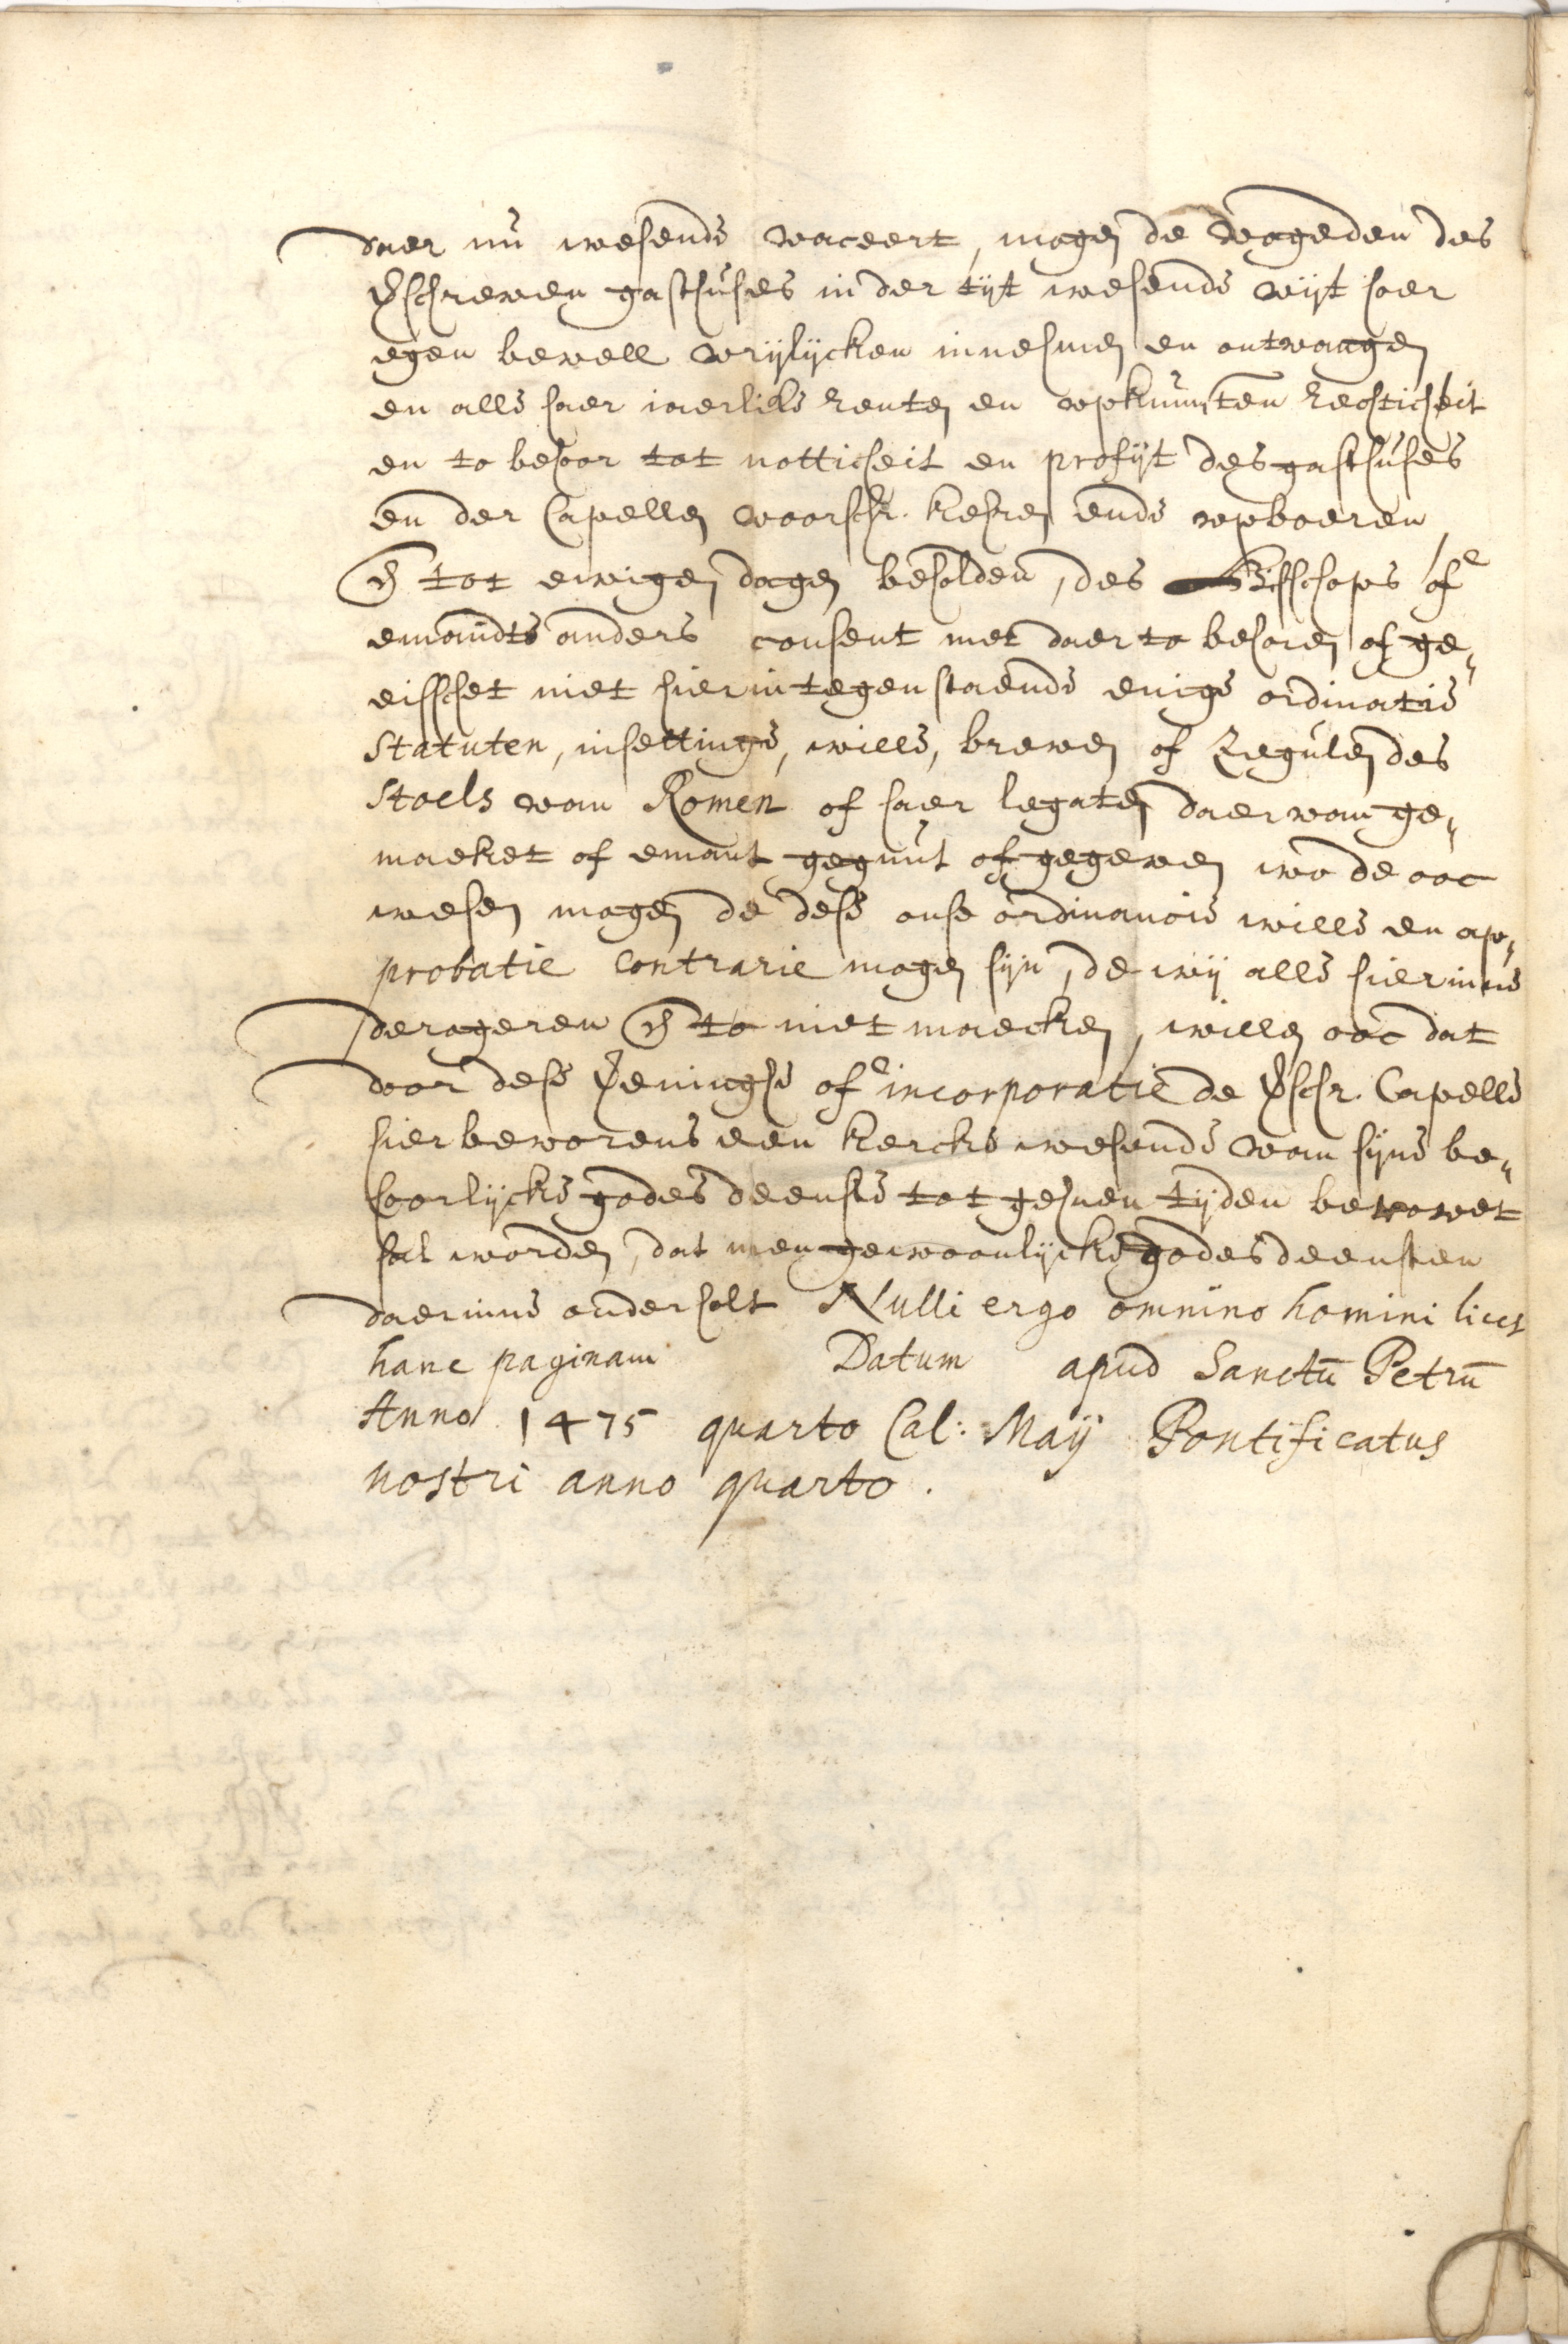 daer nu wesende vaceert, mogen de vogeden des
vschreven gasthuses in der tijt wesende wijt haer
egen bevell vrijlijcken innehmen en ontvangen
en alle haer iaerlikse renten en opkumsten rechticheit
en to behoor tot notticheit en profijt des gasthuses
en der Capellen voorschr. kehren ende opboeren
en tot ewigen dagen beholden, des Bisschops of
emandts anders consent niet daer to behoren of ge„
eisschet niet hierin tegenstaende enige ordinatie
Statuten, insettinge, wille, breven of Regulen des
Stoels van Romen of haer legaten daer van ge„
maeket of emant gegunt of gegeven wo de ooc
wesen mogen de dese onse ordinancie wille en ap„
probatie contrarie mogen sijn, de wij alle hierinne
derogeren en to niet maecken, willen ooc dat
door dese veninghe of incorporatie de vschr. Capelle
hier bevorens een kercke wesende van sijne be„
hoorlijcke godes deenste tot gehnen tijden berovet
sal worden, dat men gewoonlijcke godes deensten
daerinne onderholt Nulli ergo omnino homini licet
hanc paginam Datum apud Sanctū Petrū
Anno 1475 quarto Cal: Maij Pontificatus
nostri anno quarto.